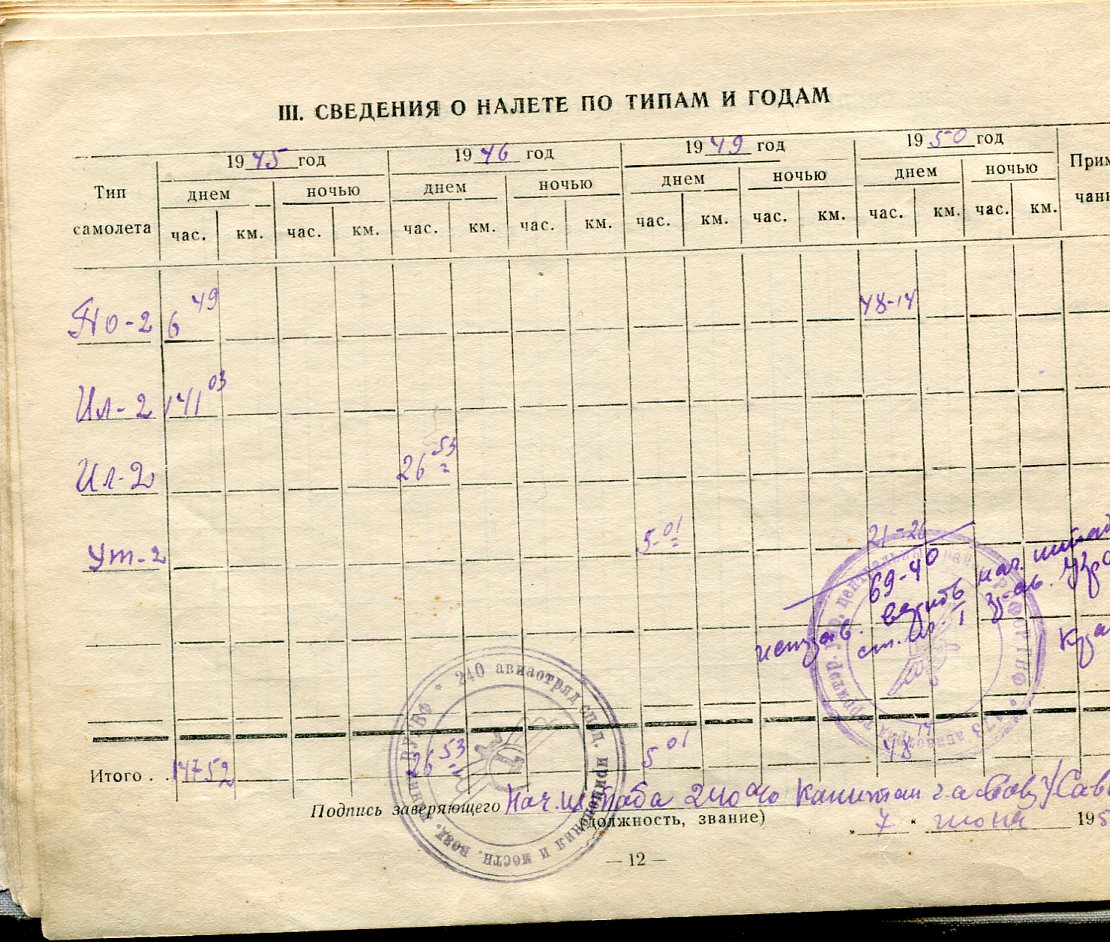 III. СВЕДЕНИЯ О НАЛЕТЕ ПО ТИПАМ И ГОДАМ
Тип самолета 1945 год 1946 год 1949 год 1950 год Прим
чани
днем ночью днем ночью днем ночью днем ночью
час. км. час. км. час. км. час. км. час. км. час. км. час. км. час. км.
По-2 6 49 48-14
Ил-2 141 03
Ил-2 26 53
Ут-2 5-01 21-26
69-40
исправ. верить нач. штаба
Итого . 147 52 26 53 5 01 48 14
Подпись заверяющего Нач. штаба 240 а/о Капитан
(должность, звание)
„ 7 “ июня 195
— 12 —
* 240 авиаотряд сп. п. применения и местн. возд.